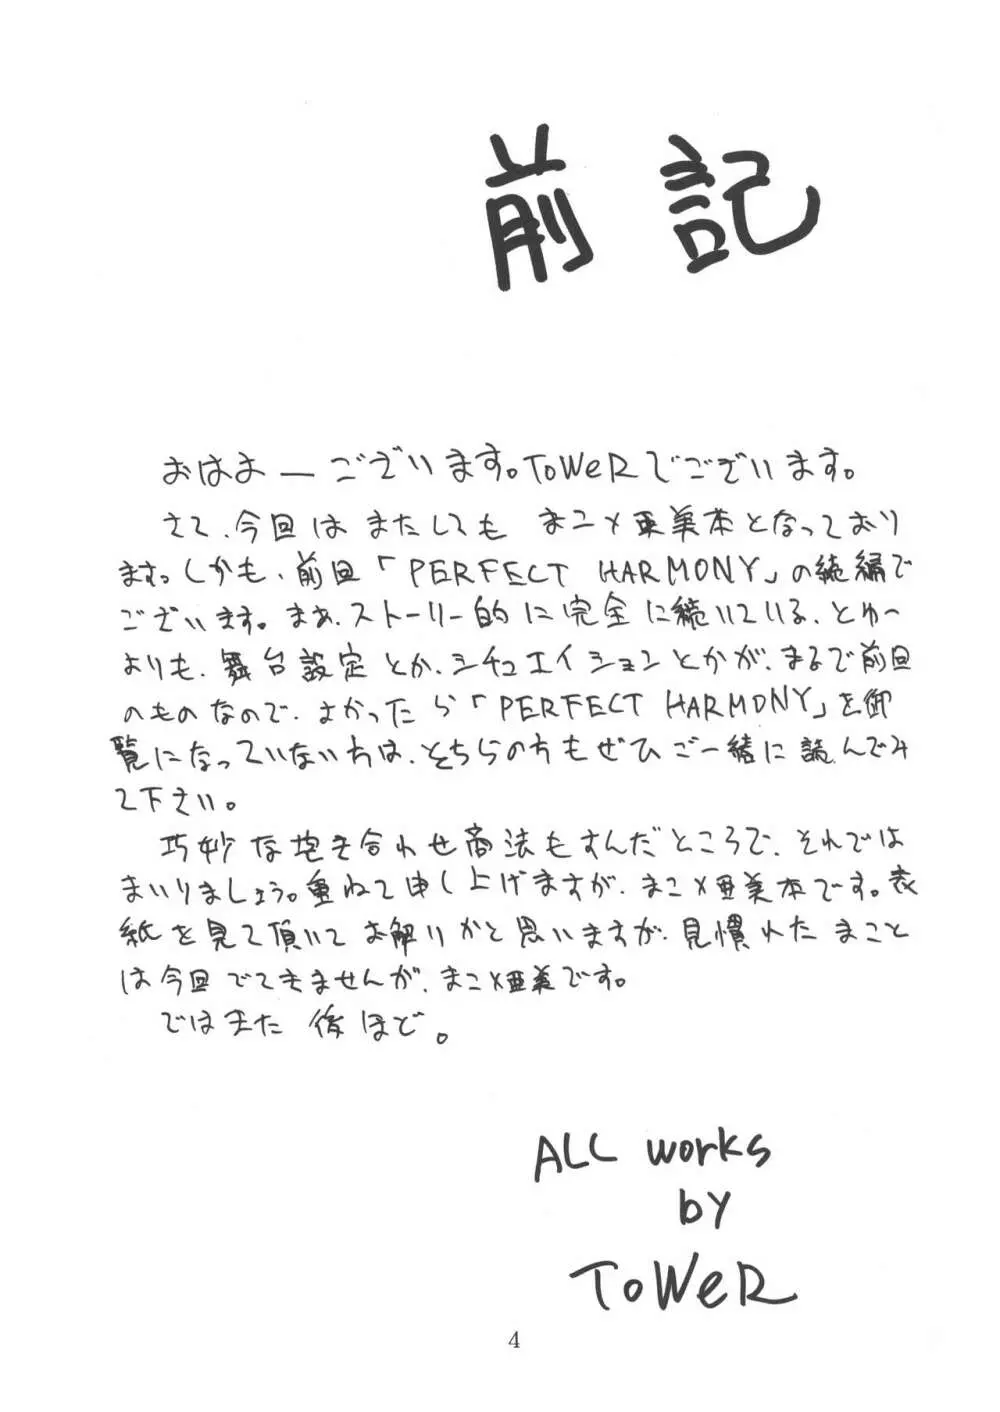 前記
おはよーございます。ToWeRでございます。
さて、今回はまたしても まこ×亜美本となっており
ます。しかも、前回「PERFECT HARMONY」の続編で
ございます。まぁ、ストーリー的に完全に続いている、とゆー
よりも、舞台設定とか、シチュエイションとかが、まるで前回
のものなので、よかったら「PERFECT HARMONY」を御
覧になっていない方は、そちらの方もぜひご一緒に読んでみ
て下さい。
巧妙な抱き合わせ商法もすんだところで、それでは
まいりましょう。重ねて申し上げますが、まこ×亜美本です。表
紙を見て頂いてお解りかと思いますが、見慣れたまこと
は今回でてきませんが、まこ×亜美です。
ではまた後ほど。
ALL works
by
ToWeR
4